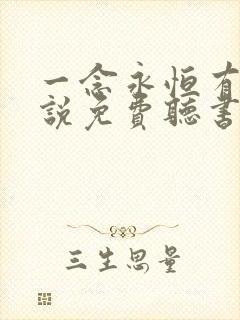 一念永恒有
說免費聽書
三生思量